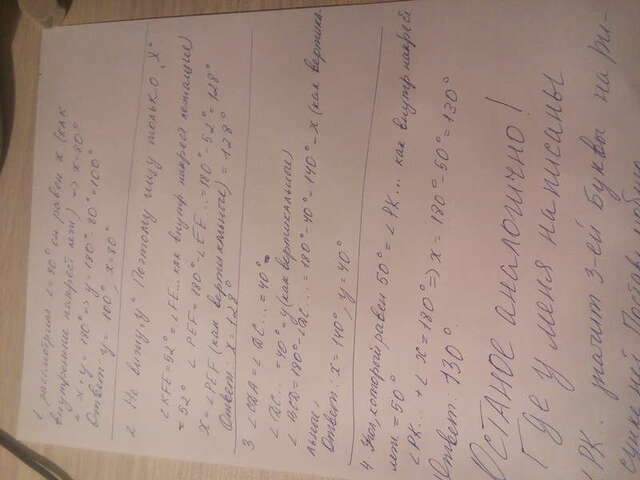 1. рассмотрим ∠=80° он равен x (как
внутренние накрест леж) => x=80°
x+y=180° => y=180°-80°=100°
Ответ: y=100°, x=80°
2. Не вижу „y“ Поэтому ищу только „x“
∠KFE=52°=∠FE... как внутр накрест лежащие)
=52° ∠PEF=180°-∠FE...=180°-52°=128°
x=∠PEF (как вертикальные)=128°
Ответ: x=128°
3 ∠CDA=∠DC...=40°
∠DC...=40°=y (как вертикальные)
∠BCD=180°-∠DC...=180°-40°=140°=x (как вертика-
льные)
Ответ: x=140°, y=40°
4. Угол, который равен 50°=∠PK... как внутр накрест
леж=50°
∠PK...+∠x=180°=>x=180°-50°=130°
Ответ: 130°
ОСТАНОЕ аналогично!
Где у меня написаны
∠PK.. значит 3-ей буквы на ри-
сунке нет.